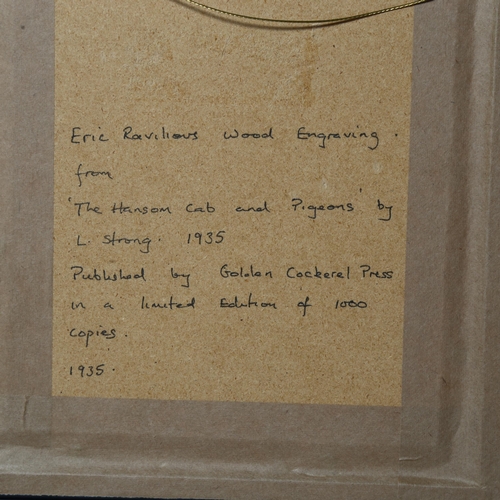 Eric Ravilious Wood Engraving.
from
'The Hansom Cab and Pigeons' by
L. Strong. 1935
Published by Golden Cockerel Press
in a limited Edition of 1000
copies.
1935.